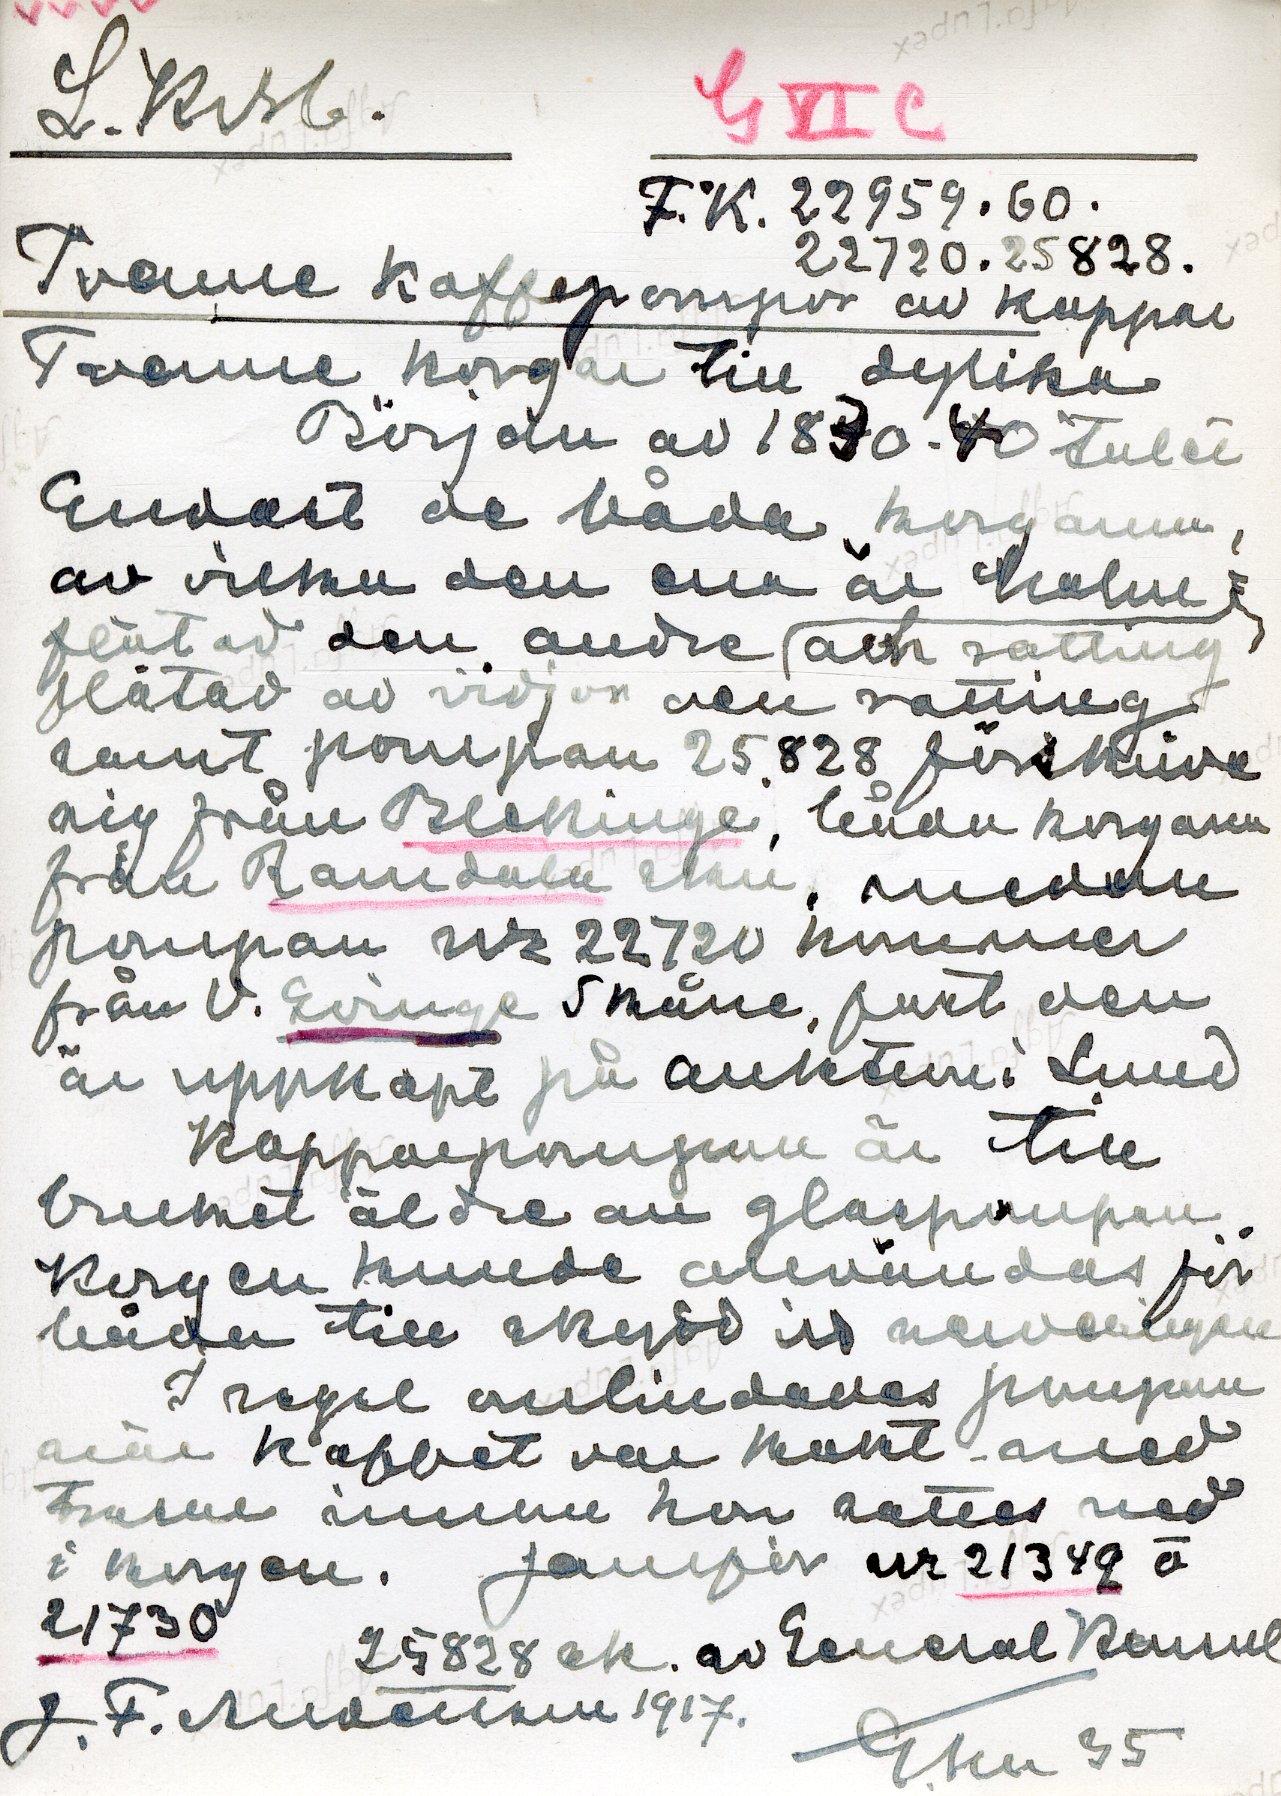 L. Krbl.
G VI C
F.K. 22959.60.
22720.25828.
Tvenne Kaffepompor av Koppar
Tvenne korgar till dylika
Början av 1830-40 talet
Endast de båda korgarna,
av vilka den ena är halm
flätad den andre och rotting
flätad av vidjor den rotting
samt pompan 25.828 förskriva
sig från Blekinge, båda korgarna
från Ramdala skn, medan
pompan nr 22720 kommer
från V. Gvinge Skåne, fast den
är uppköpt på auktion i Lund
Kopparpompan är till
bruket äldre än glaspompan.
Korgen kunde användas för
båda till skydd vid serveringen
I regel omlindades pompan
när kaffet var kokt med
trasor innan hon sattes ned
i korgen. Jämför nr 21349 o
21730
25828 sk. av General Konsul
J. F. 1917.
35